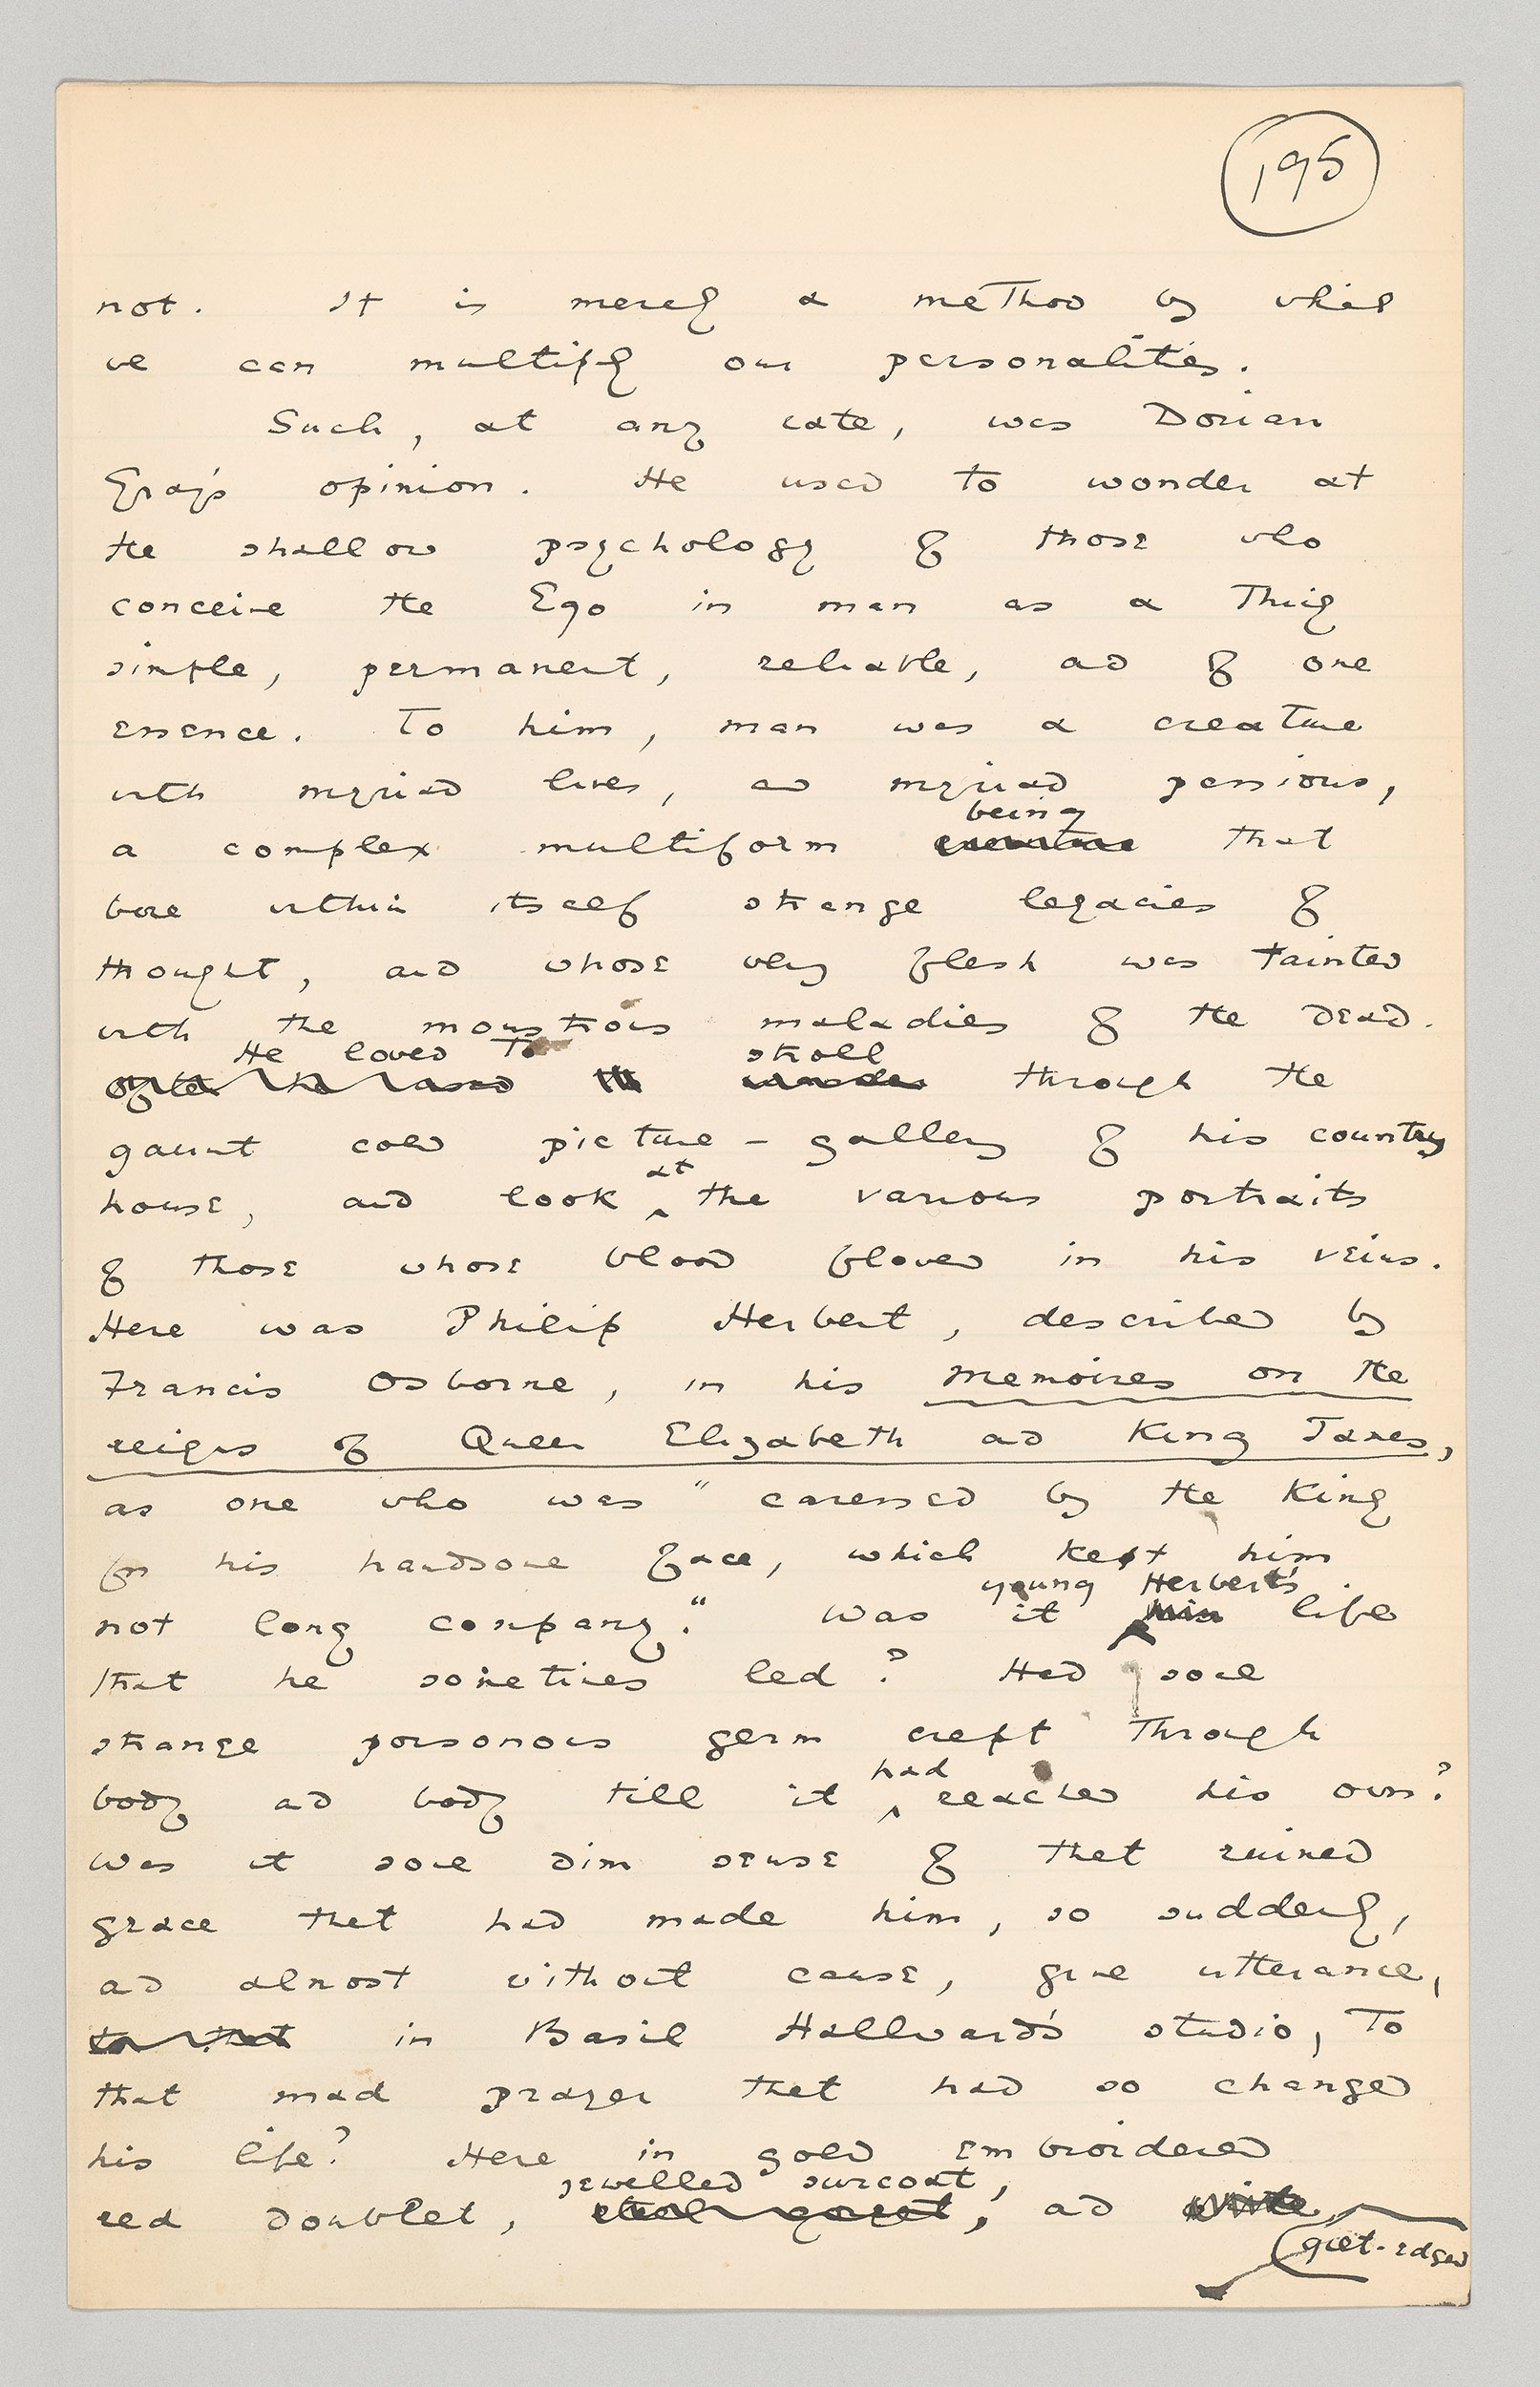 195
not. It is merely a method by which
we can multiply our personalities.
Such, at any rate, was Dorian
Gray's opinion. He used to wonder at
the shallow psychology of those who
conceive the Ego in man as a Thing
simple, permanent, reliable, and of one
essence. To him, man was a creature
with myriad lives, and myriad passions,
being
a complex multiform creature that
bore within itself strange legacies of
thought, and whose very flesh was tainted
with the monstrous maladies of the dead.
He loved To stroll
often he loved to wander through the
gaunt cold picture-gallery of his country
at
house, and look ‸ the various portraits
of those whose blood flowed in his veins.
Here was Philip Herbert, described by
Francis Osborne, in his Memoires on the
reigns of Queen Elizabeth and King James,
as one who was "caressed by the King
for his handsome face, which kept him
young Herbert's
not long company." Was it his life
that he sometimes led? Had some
strange poisonous germ crept through
had
body and body till it ‸ reached his own?
Was it some dim sense of that ruined
grace that had made him, so suddenly,
and almost without cause, give utterance,
to that in Basil Hallward's studio, To
that mad prayer that had so changed
his life? Here in gold embroidered
jewelled surcoat,
red doublet, steel gorget, and white
gilt-edged